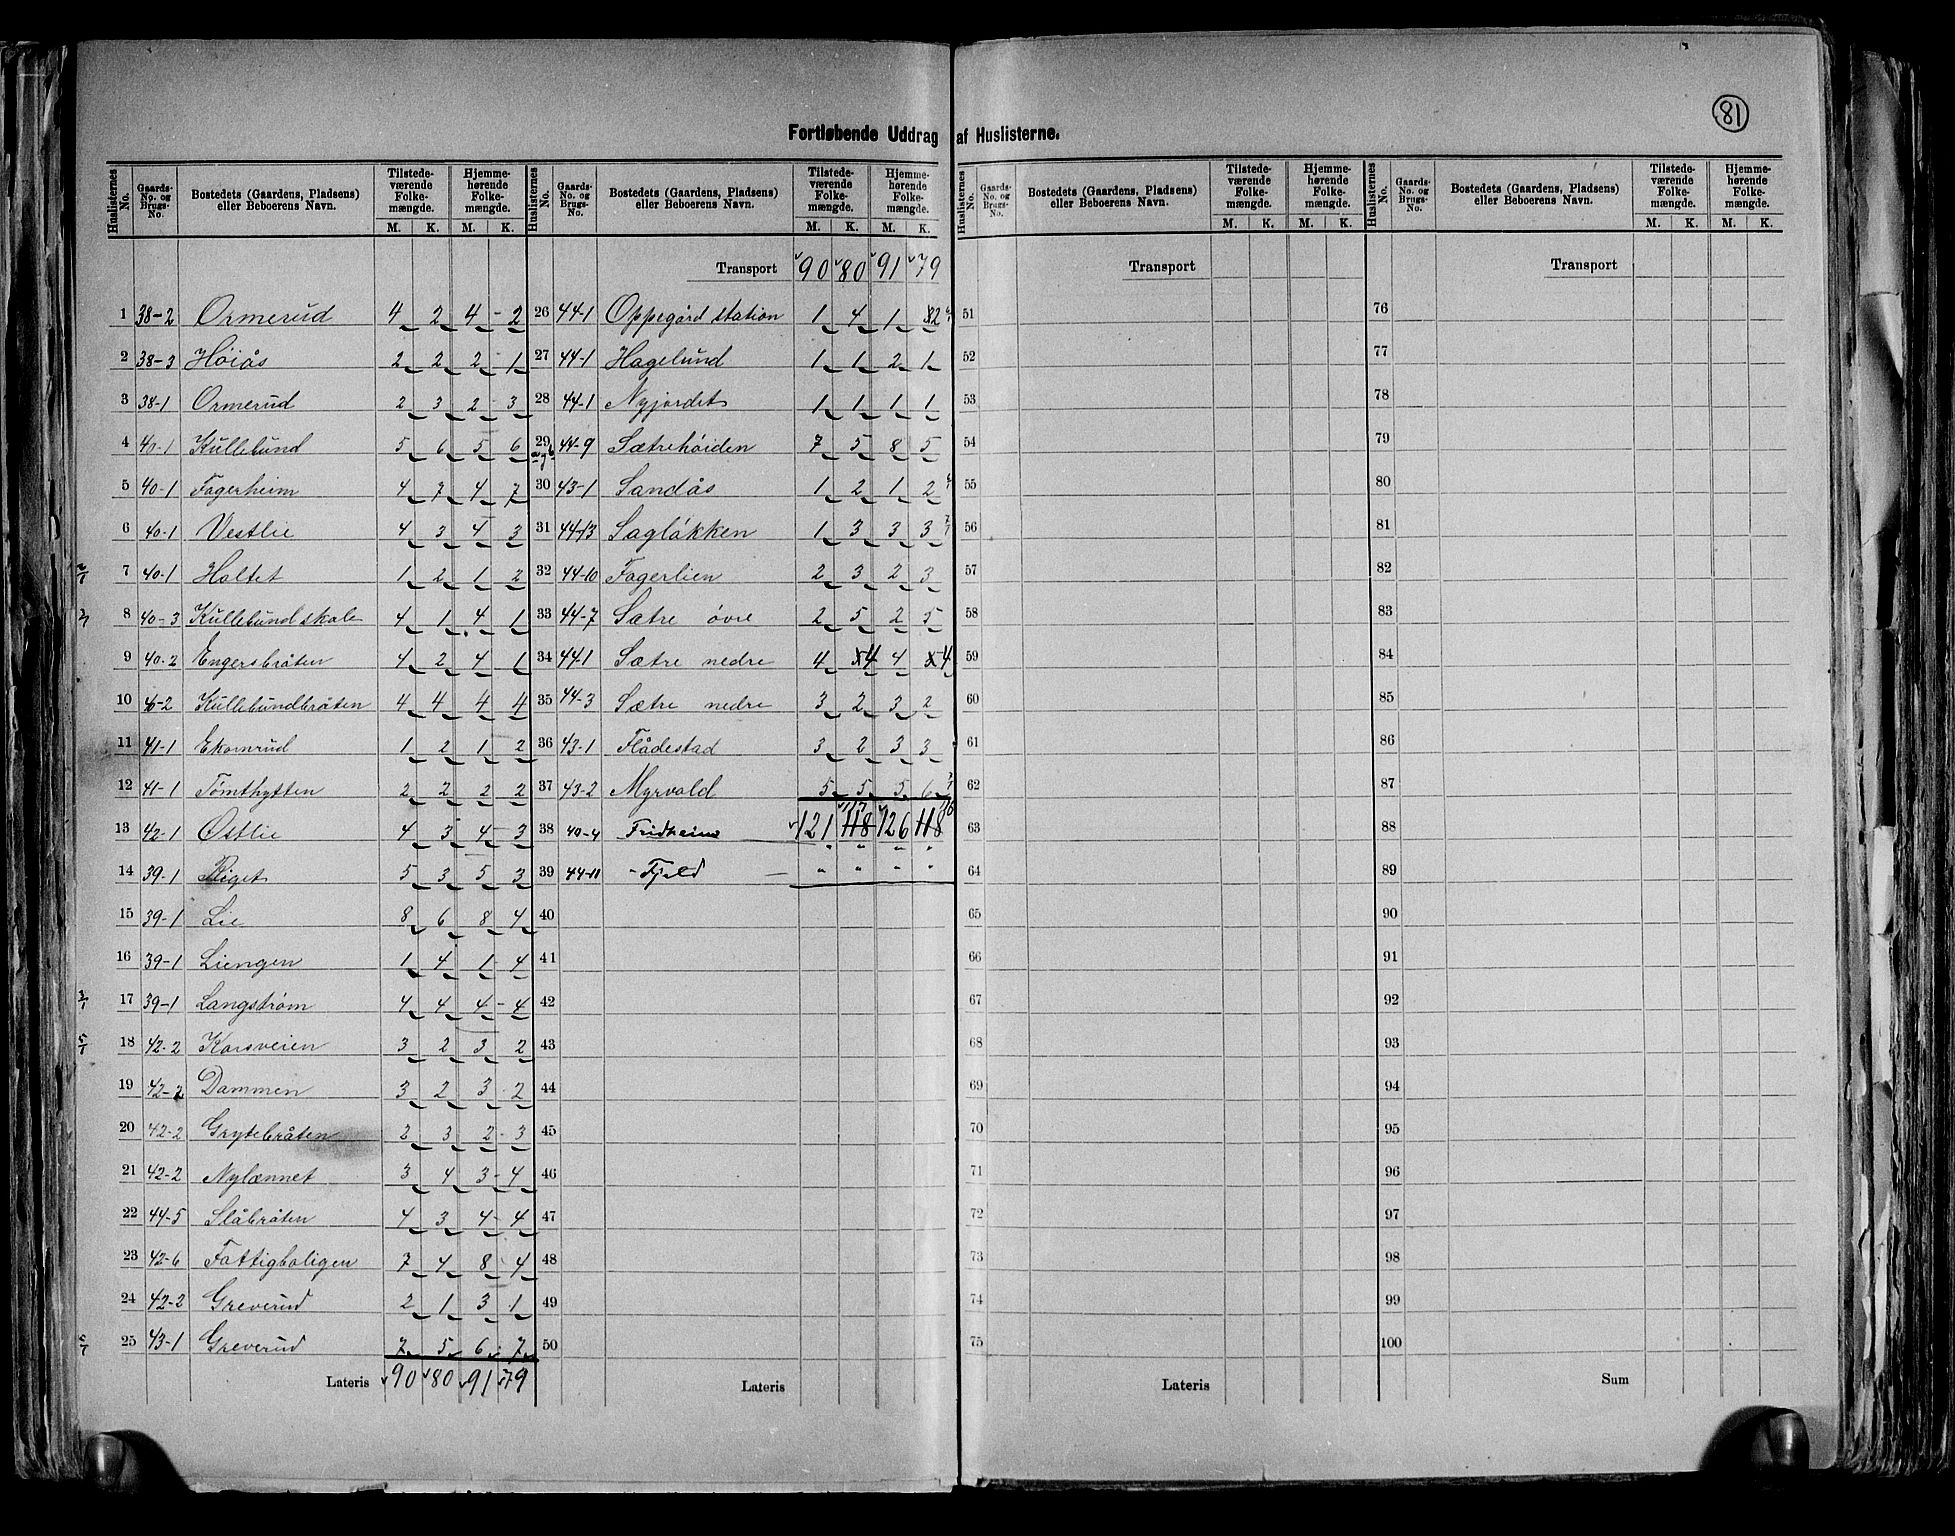 81
Fortløbende Uddrag af Huslisterne.
Huslisternes No. | Gaards-No. og Brugs-No. | Bostedets (Gaardens, Pladsens) eller Beboerens Navn. | Tilstedeværende Folkemængde. M. K. | Hjemmehørende Folkemængde. M. K.
1 38-2 Ormerud 4 2 4 - 2
2 38-3 Höiås 2 2 2 - 1
3 38-1 Ormerud 2 3 2 - 3
4 40-1 Kullebund 5 6 5 6
5 40-1 Fagerheim 4 7 4 7
6 40-1 Vestlie 4 3 4 3
7 40-1 Holtet 1 2 1 2
8 40-3 Kullebund skole 4 1 4 1
9 40-2 Engersbråten 4 2 4 1
10 40-2 Kullebundbråten 4 4 4 4
11 41-1 Ekornrud 1 2 1 2
12 41-1 Tömthytten 2 2 2 2
13 42-1 Östlie 4 3 4 - 3
14 39-1 Riget 5 3 5 3
15 39-1 Lie 8 6 8 4
16 39-1 Liengen 1 4 1 - 4
17 39-1 Langström 4 4 4 - 4
18 42-2 Korsveien 3 2 3 2
19 42-2 Dammen 3 2 3 2
20 42-2 Grytebråten 2 3 2 - 3
21 42-2 Nylænnet 3 4 3 - 4
22 44-5 Slåbråten 4 3 4 - 4
23 42-6 Fattigboligen 7 4 8 4
24 42-2 Greverud 2 1 3 1
25 43-1 Greverud 7 5 6 7
Lateris 90 80 91 79
Huslisternes No. | Gaards-No. og Brugs-No. | Bostedets (Gaardens, Pladsens) eller Beboerens Navn. | Tilstedeværende Folkemængde. M. K. | Hjemmehørende Folkemængde. M. K.
Transport 90 80 91 79
26 44-1 Oppegård station 1 4 1 2
27 44-1 Hagelund 1 1 2 1
28 44-1 Nyjordet 1 1 1 1
29 44-9 Sætrehöiden 7 5 8 5
30 43-1 Sandås 1 2 1 2
31 44-13 Saglökken 1 3 3 3
32 44-10 Fagerlien 2 3 2 3
33 44-7 Sætre övre 2 5 2 5
34 44-1 Sætre nedre 4 4 4 4
35 44-3 Sætre nedre 3 2 3 2
36 43-1 Flådestad 3 2 3 3
37 43-2 Myrvold 5 5 5 6
117 116
38 40-4 Fridheim 121 118 126 118
" " " "
39 44-11 - Fjeld - " " " "
40
41
42
43
44
45
46
47
48
49
50
Lateris
Huslisternes No. | Gaards-No. og Brugs-No. | Bostedets (Gaardens, Pladsens) eller Beboerens Navn. | Tilstedeværende Folkemængde. M. K. | Hjemmehørende Folkemængde. M. K.
Transport
51
52
53
54
55
56
57
58
59
60
61
62
63
64
65
66
67
68
69
70
71
72
73
74
75
Lateris
Huslisternes No. | Gaards-No. og Brugs-No. | Bostedets (Gaardens, Pladsens) eller Beboerens Navn. | Tilstedeværende Folkemængde. M. K. | Hjemmehørende Folkemængde. M. K.
Transport
76
77
78
79
80
81
82
83
84
85
86
87
88
89
90
91
92
93
94
95
96
97
98
99
100
Sum